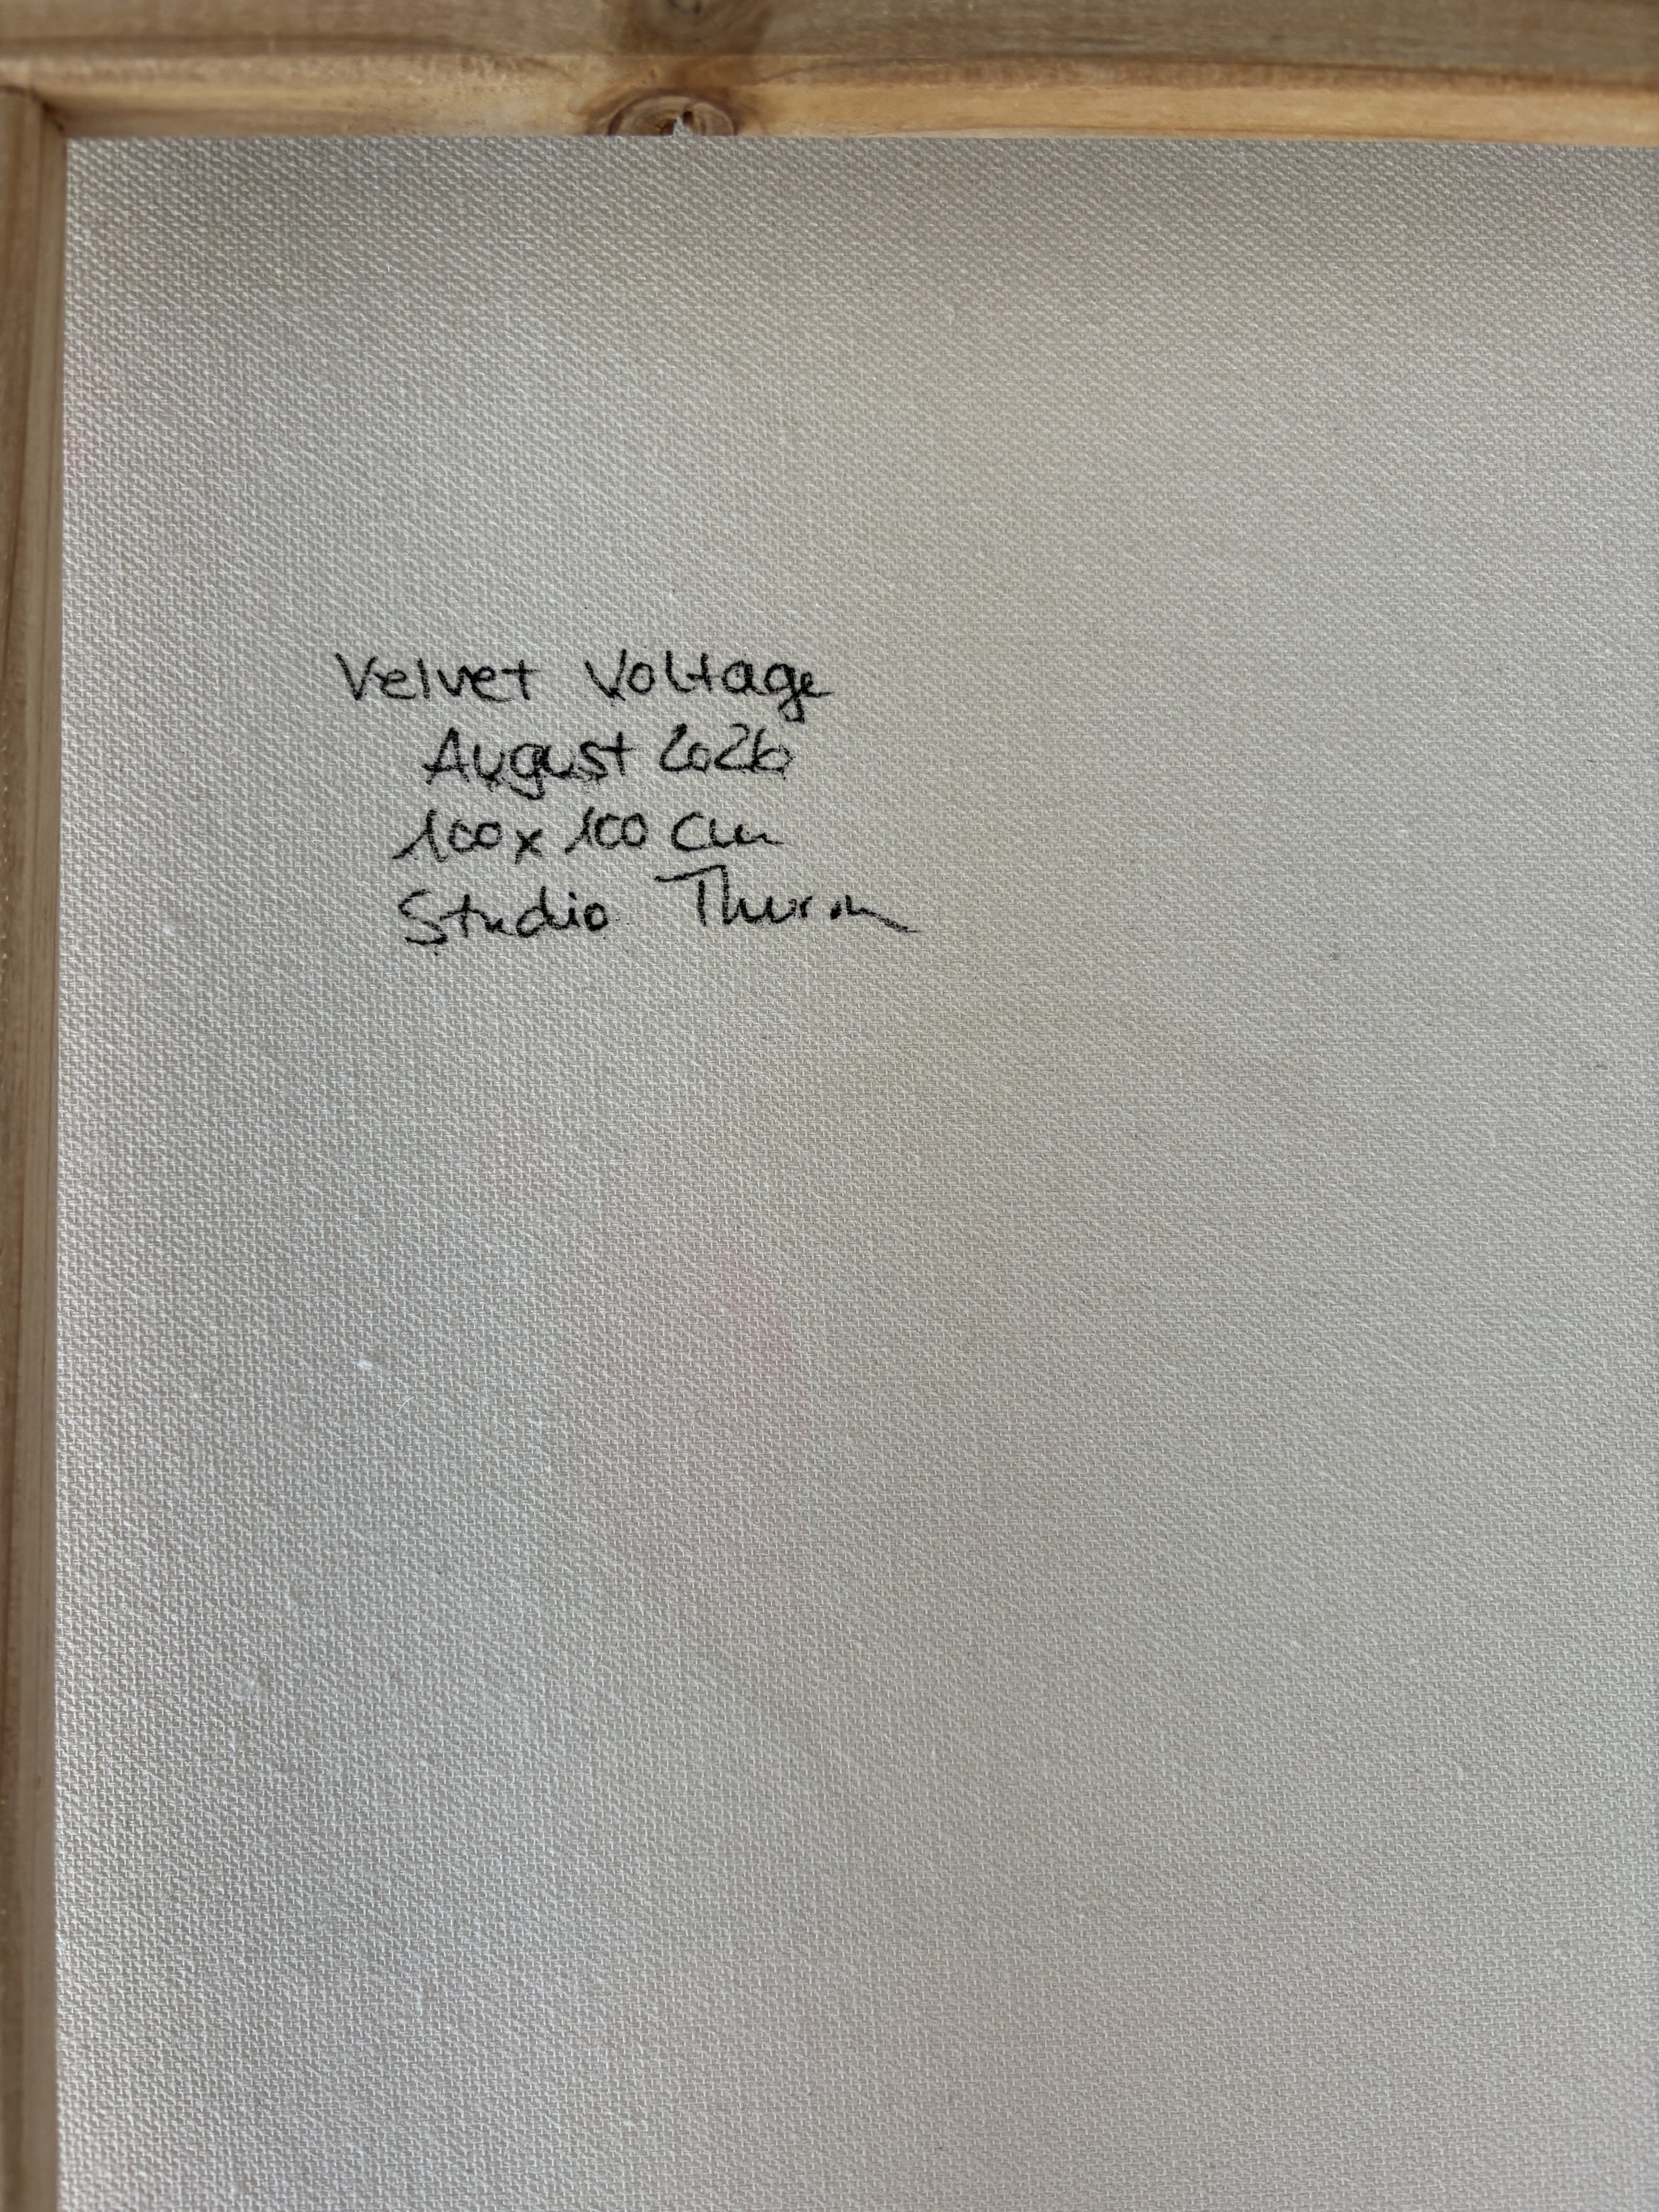 Velvet Voltage
August 2026
100x100 cm
Studio